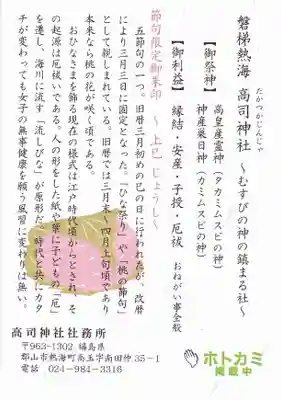 磐梯熱海 高司神社 ～むすびの神の鎮まる社～
たかつかじんじゃ
【御祭神】
高皇産霊神（タカミムスビの神）
神産巣日神（カミムスビの神）
【御利益】 縁結・安産・子授・厄祓 おねがい事全般
節句限定御朱印 ～上巳・じょうし～
五節句の一つ。旧暦三月初めの巳の日に行われたが、改暦
により三月三日に固定となった。「ひな祭り」や「桃の節句」
として親しまれている。旧暦では三月末～四月上旬頃であり
本来なら桃の花が咲く頃である。
おひなさまを飾る現在の様式は江戸時代頃からとされ、そ
の起源は厄祓いである。人の形をした紙や藁に子どもの「厄」
を遷し、海川に流す「流しびな」が原形だ。時代と共にカタ
チが変わっても女子の無事健康を願う風習に変わりは無い。
高司神社社務所
〒963-1302 福島県
郡山市熱海町高玉字南田仲35-1
電話 024-984-3316
ホトカミ
掲載中